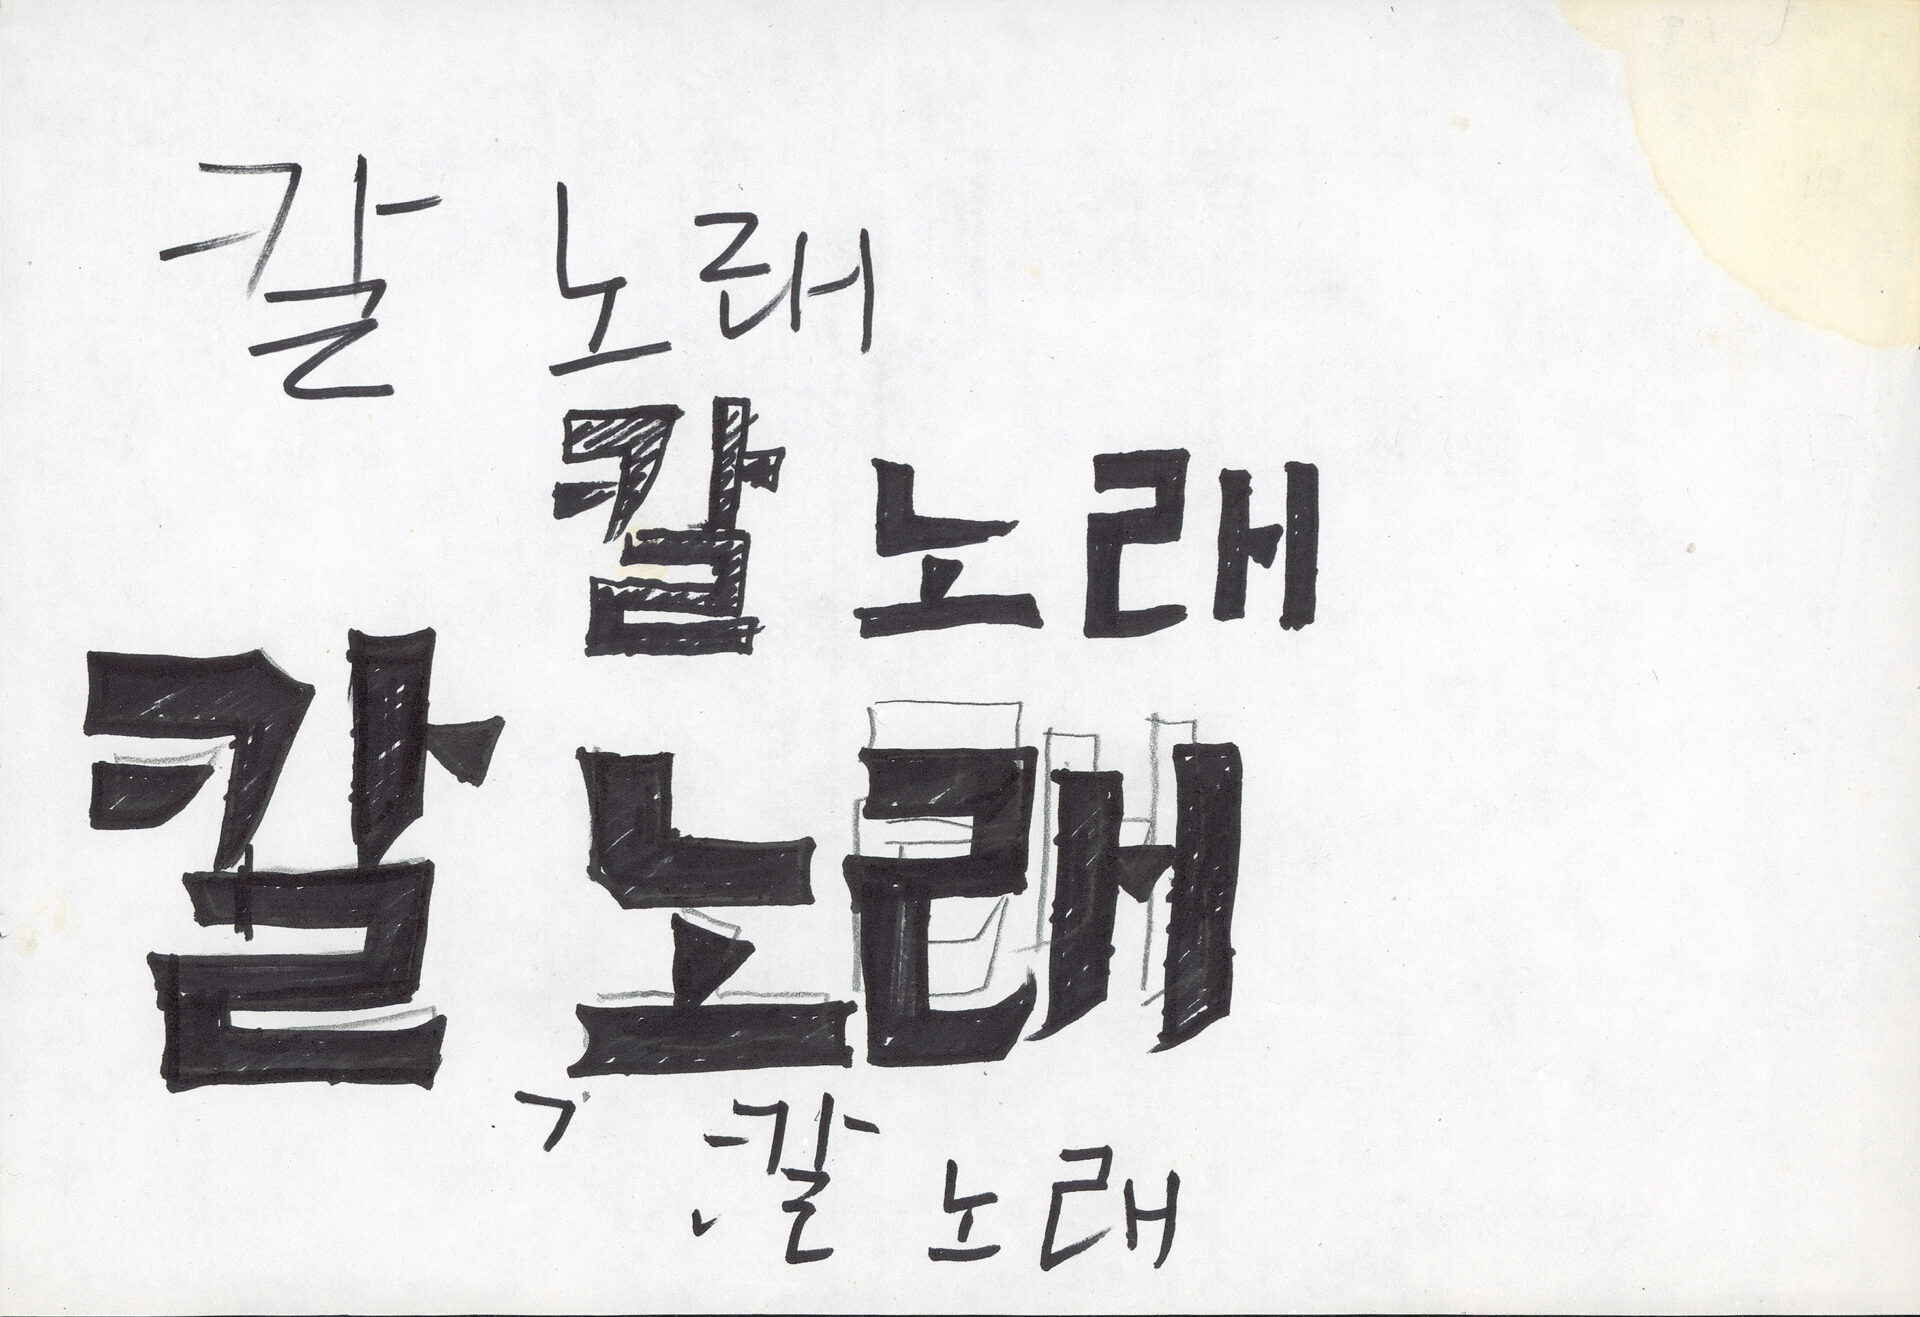 칼 노래
칼 노래
칼 노래
ㄱ 칼 노래